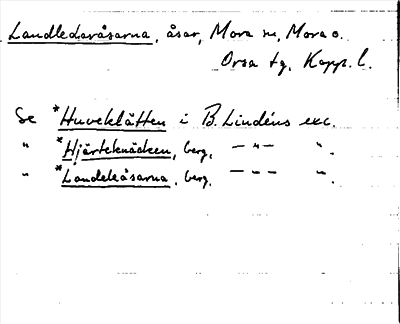 Landledaråsarna, åsar, Mora sn, Mora o.
Orsa tg, Kopp. l.
Se *Huveklätten i B. Lindéns exc.
" *Hjärteknäcken, berg, — " — ".
" *Landeleåsarna, berg, — " — ".